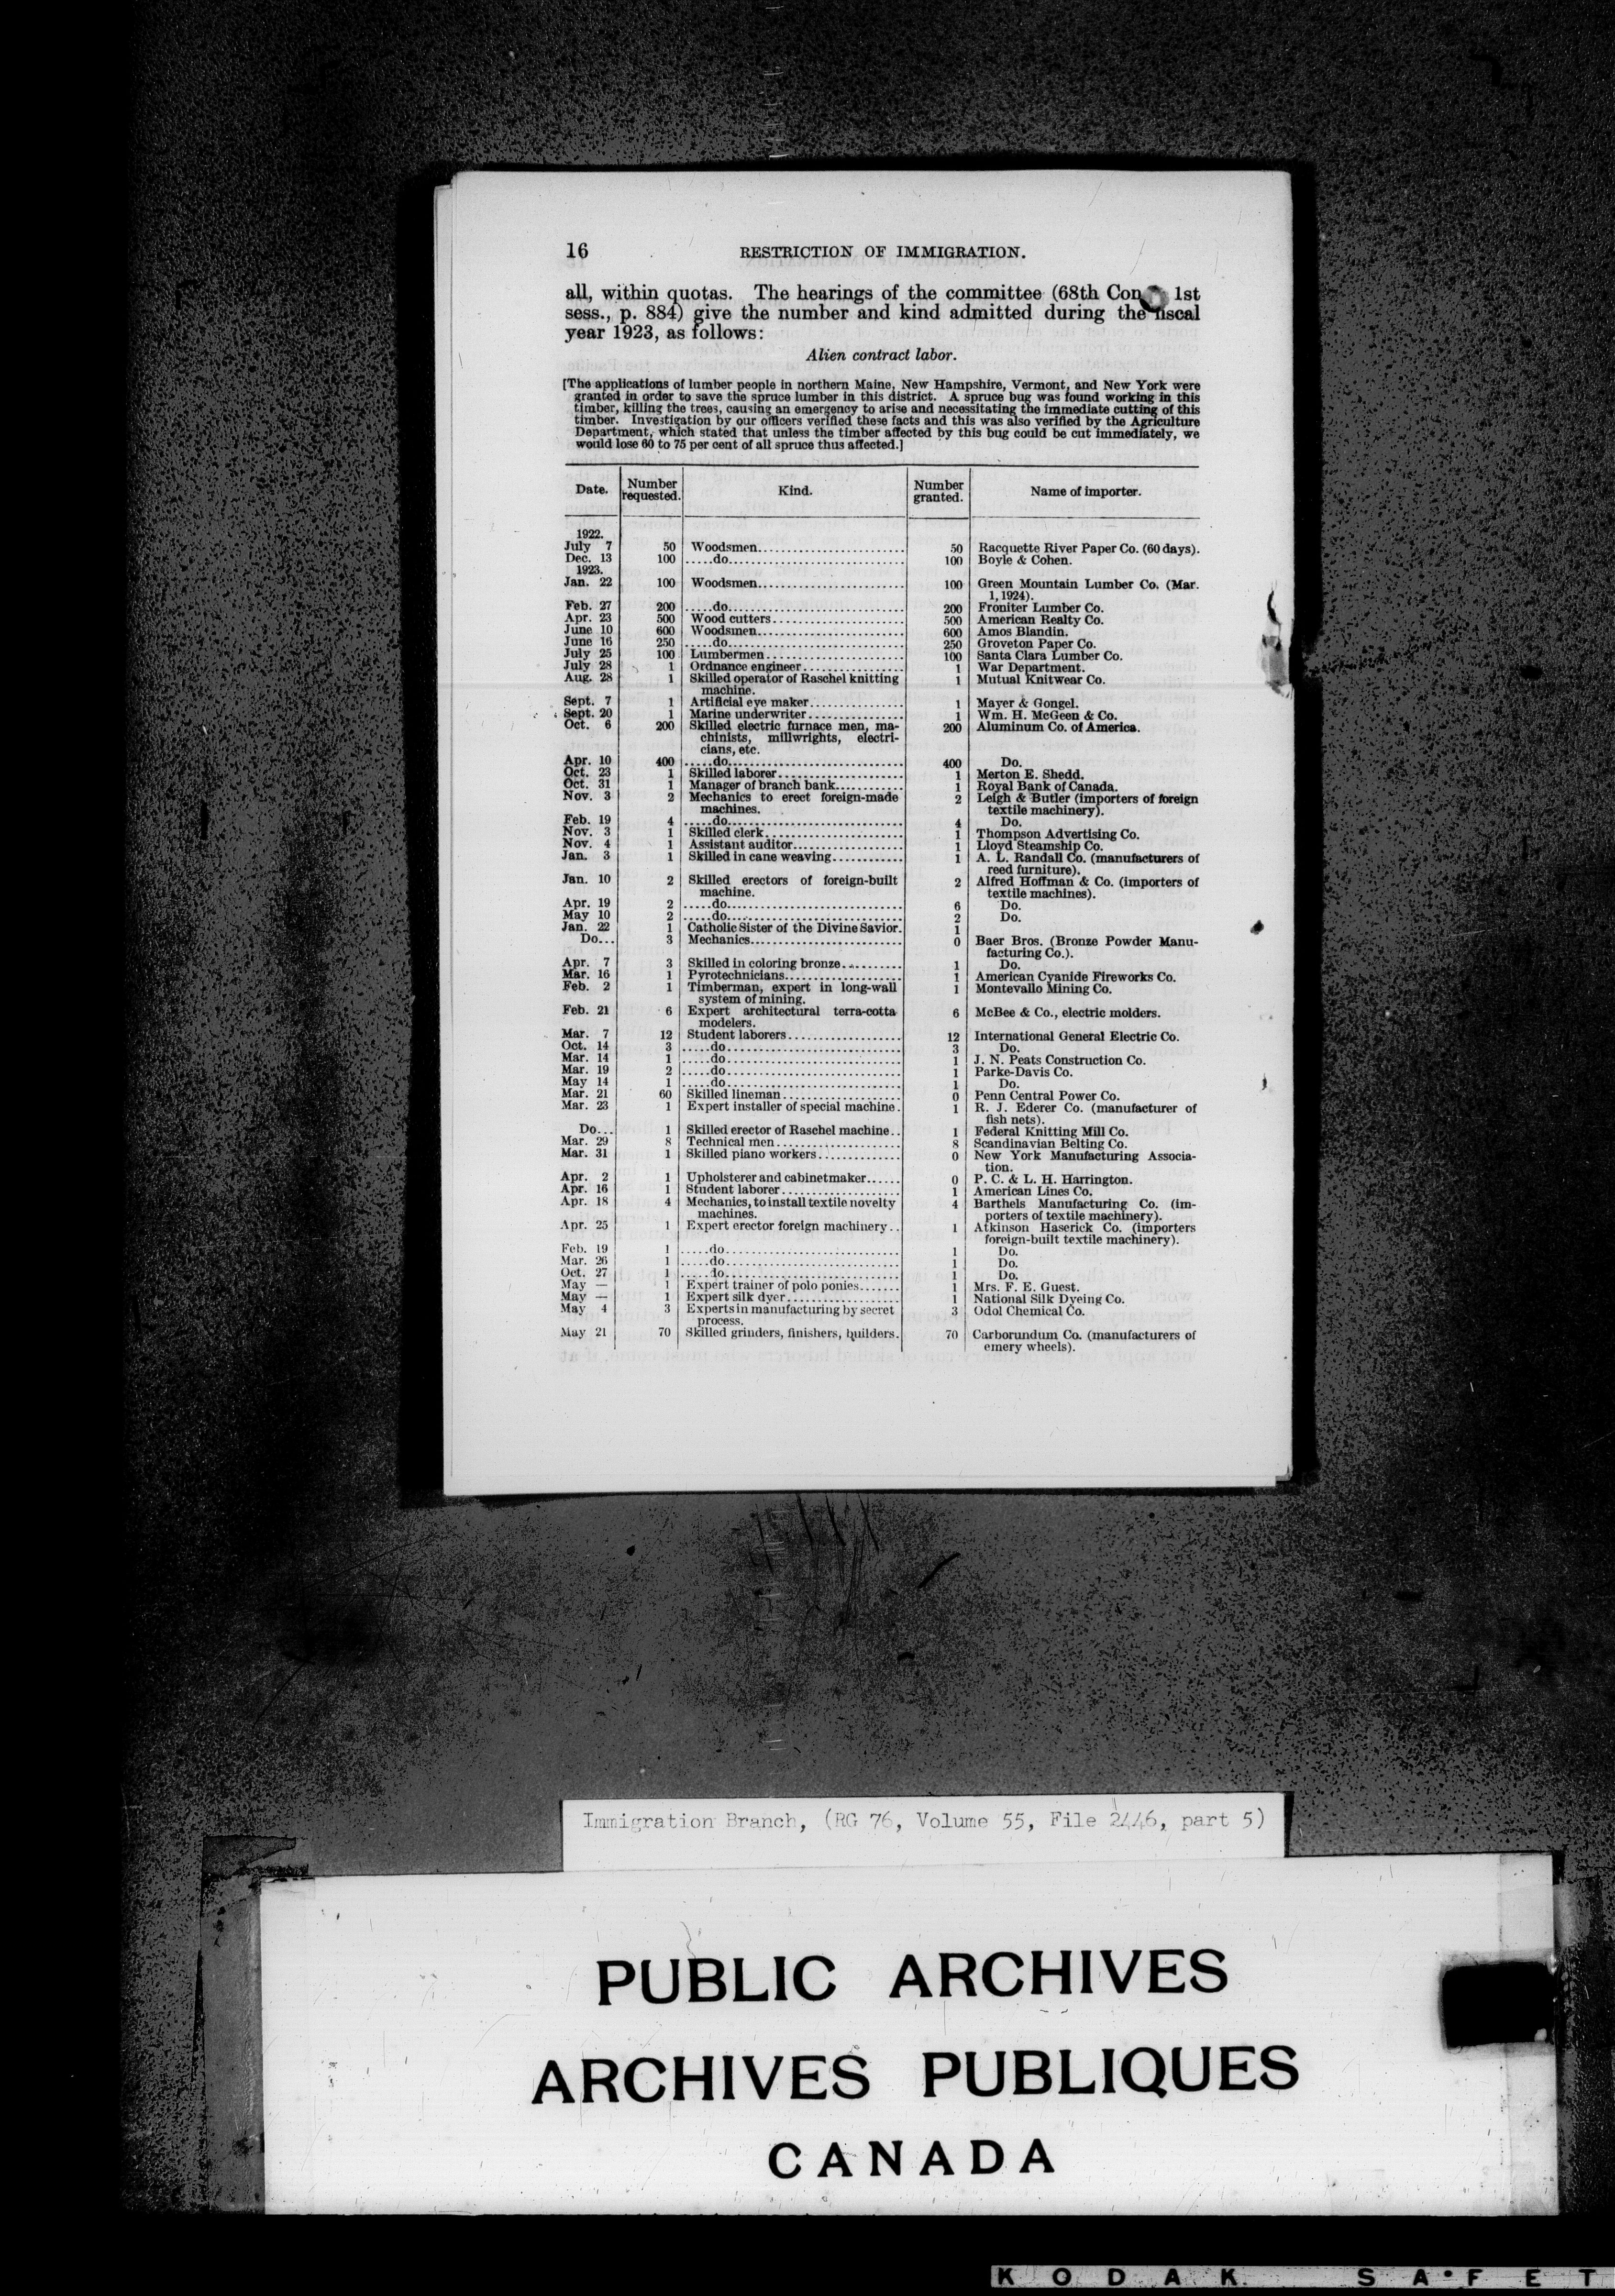 16 RESTRICTION OF IMMIGRATION.
all, within quotas. The hearings of the committee (68th Con 1st
sess., p. 884) give the number and kind admitted during the fiscal
year 1923, as follows:
Alien contract labor.
[The applications of lumber people in northern Maine, New Hampshire, Vermont, and New York were
granted in order to save the spruce lumber in this district. A spruce bug was found working in this
timber, killing the trees, causing an emergency to arise and necessitating the immediate cutting of this
timber. Investigation by our officers verified these facts and this was also verified by the Agriculture
Department, which stated that unless the timber affected by this bug could be cut immediately, we
would lose 60 to 75 per cent of all spruce thus affected.]
Date. Number requested. Kind. Number granted. Name of importer.
1922.
July 7 50 Woodsmen 50 Racquette River Paper Co. (60 days).
Dec. 13 100 do 100 Boyle & Cohen.
1923.
Jan. 22 100 Woodsmen 100 Green Mountain Lumber Co. (Mar.
1, 1924).
Feb. 27 200 do 200 Froniter Lumber Co.
Apr. 23 500 Wood cutters 500 American Realty Co.
June 10 600 Woodsmen 600 Amos Blandin.
June 16 250 do 250 Groveton Paper Co.
July 25 100 Lumbermen 100 Santa Clara Lumber Co.
July 28 1 Ordnance engineer 1 War Department.
Aug. 28 1 Skilled operator of Raschel knitting 1 Mutual Knitwear Co.
machine.
Sept. 7 1 Artificial eye maker 1 Mayer & Gongel.
Sept. 20 1 Marine underwriter 1 Wm. H. McGeen & Co.
Oct. 6 200 Skilled electric furnace men, ma- 200 Aluminum Co. of America.
chinists, millwrights, electri-
cians, etc.
Apr. 10 400 do 400 Do.
Oct. 23 1 Skilled laborer 1 Merton E. Shedd.
Oct. 31 1 Manager of branch bank 1 Royal Bank of Canada.
Nov. 3 2 Mechanics to erect foreign-made 2 Leigh & Butler (importers of foreign
machines. textile machinery).
Feb. 19 4 do 4 Do.
Nov. 3 1 Skilled clerk 1 Thompson Advertising Co.
Nov. 4 1 Assistant auditor 1 Lloyd Steamship Co.
Jan. 3 1 Skilled in cane weaving 1 A. L. Randall Co. (manufacturers of
reed furniture).
Jan. 10 2 Skilled erectors of foreign-built 2 Alfred Hoffman & Co. (importers of
machine. textile machines).
Apr. 19 2 do 6 Do.
May 10 2 do 2 Do.
Jan. 22 1 Catholic Sister of the Divine Savior. 1
Do... 3 Mechanics 0 Baer Bros. (Bronze Powder Manu-
facturing Co.).
Apr. 7 3 Skilled in coloring bronze 1 Do.
Mar. 16 1 Pyrotechnicians 1 American Cyanide Fireworks Co.
Feb. 2 1 Timberman, expert in long-wall 1 Montevallo Mining Co.
system of mining.
Feb. 21 6 Expert architectural terra-cotta 6 McBee & Co., electric molders.
modelers.
Mar. 7 12 Student laborers 12 International General Electric Co.
Oct. 14 3 do 3 Do.
Mar. 14 1 do 1 J. N. Peats Construction Co.
Mar. 19 2 do 1 Parke-Davis Co.
May 14 1 do 1 Do.
Mar. 21 60 Skilled lineman 0 Penn Central Power Co.
Mar. 23 1 Expert installer of special machine. 1 R. J. Ederer Co. (manufacturer of
fish nets).
Do... 1 Skilled erector of Raschel machine.. 1 Federal Knitting Mill Co.
Mar. 29 8 Technical men 8 Scandinavian Belting Co.
Mar. 31 1 Skilled piano workers 0 New York Manufacturing Associa-
tion.
Apr. 2 1 Upholsterer and cabinetmaker 0 P. C. & L. H. Harrington.
Apr. 16 1 Student laborer 1 American Lines Co.
Apr. 18 4 Mechanics, to install textile novelty 4 Barthels Manufacturing Co. (im-
machines. porters of textile machinery).
Apr. 25 1 Expert erector foreign machinery.. 1 Atkinson Haserick Co. (importers
foreign-built textile machinery).
Feb. 19 1 do 1 Do.
Mar. 26 1 do 1 Do.
Oct. 27 1 do 1 Do.
May — 1 Expert trainer of polo ponies 1 Mrs. F. E. Guest.
May — 1 Expert silk dyer 1 National Silk Dyeing Co.
May 4 3 Experts in manufacturing by secret 3 Odol Chemical Co.
process.
May 21 70 Skilled grinders, finishers, builders. 70 Carborundum Co. (manufacturers of
emery wheels).
Immigration Branch, (RG 76, Volume 55, File 2446, part 5)
PUBLIC ARCHIVES
ARCHIVES PUBLIQUES
CANADA
KODAK SAFET